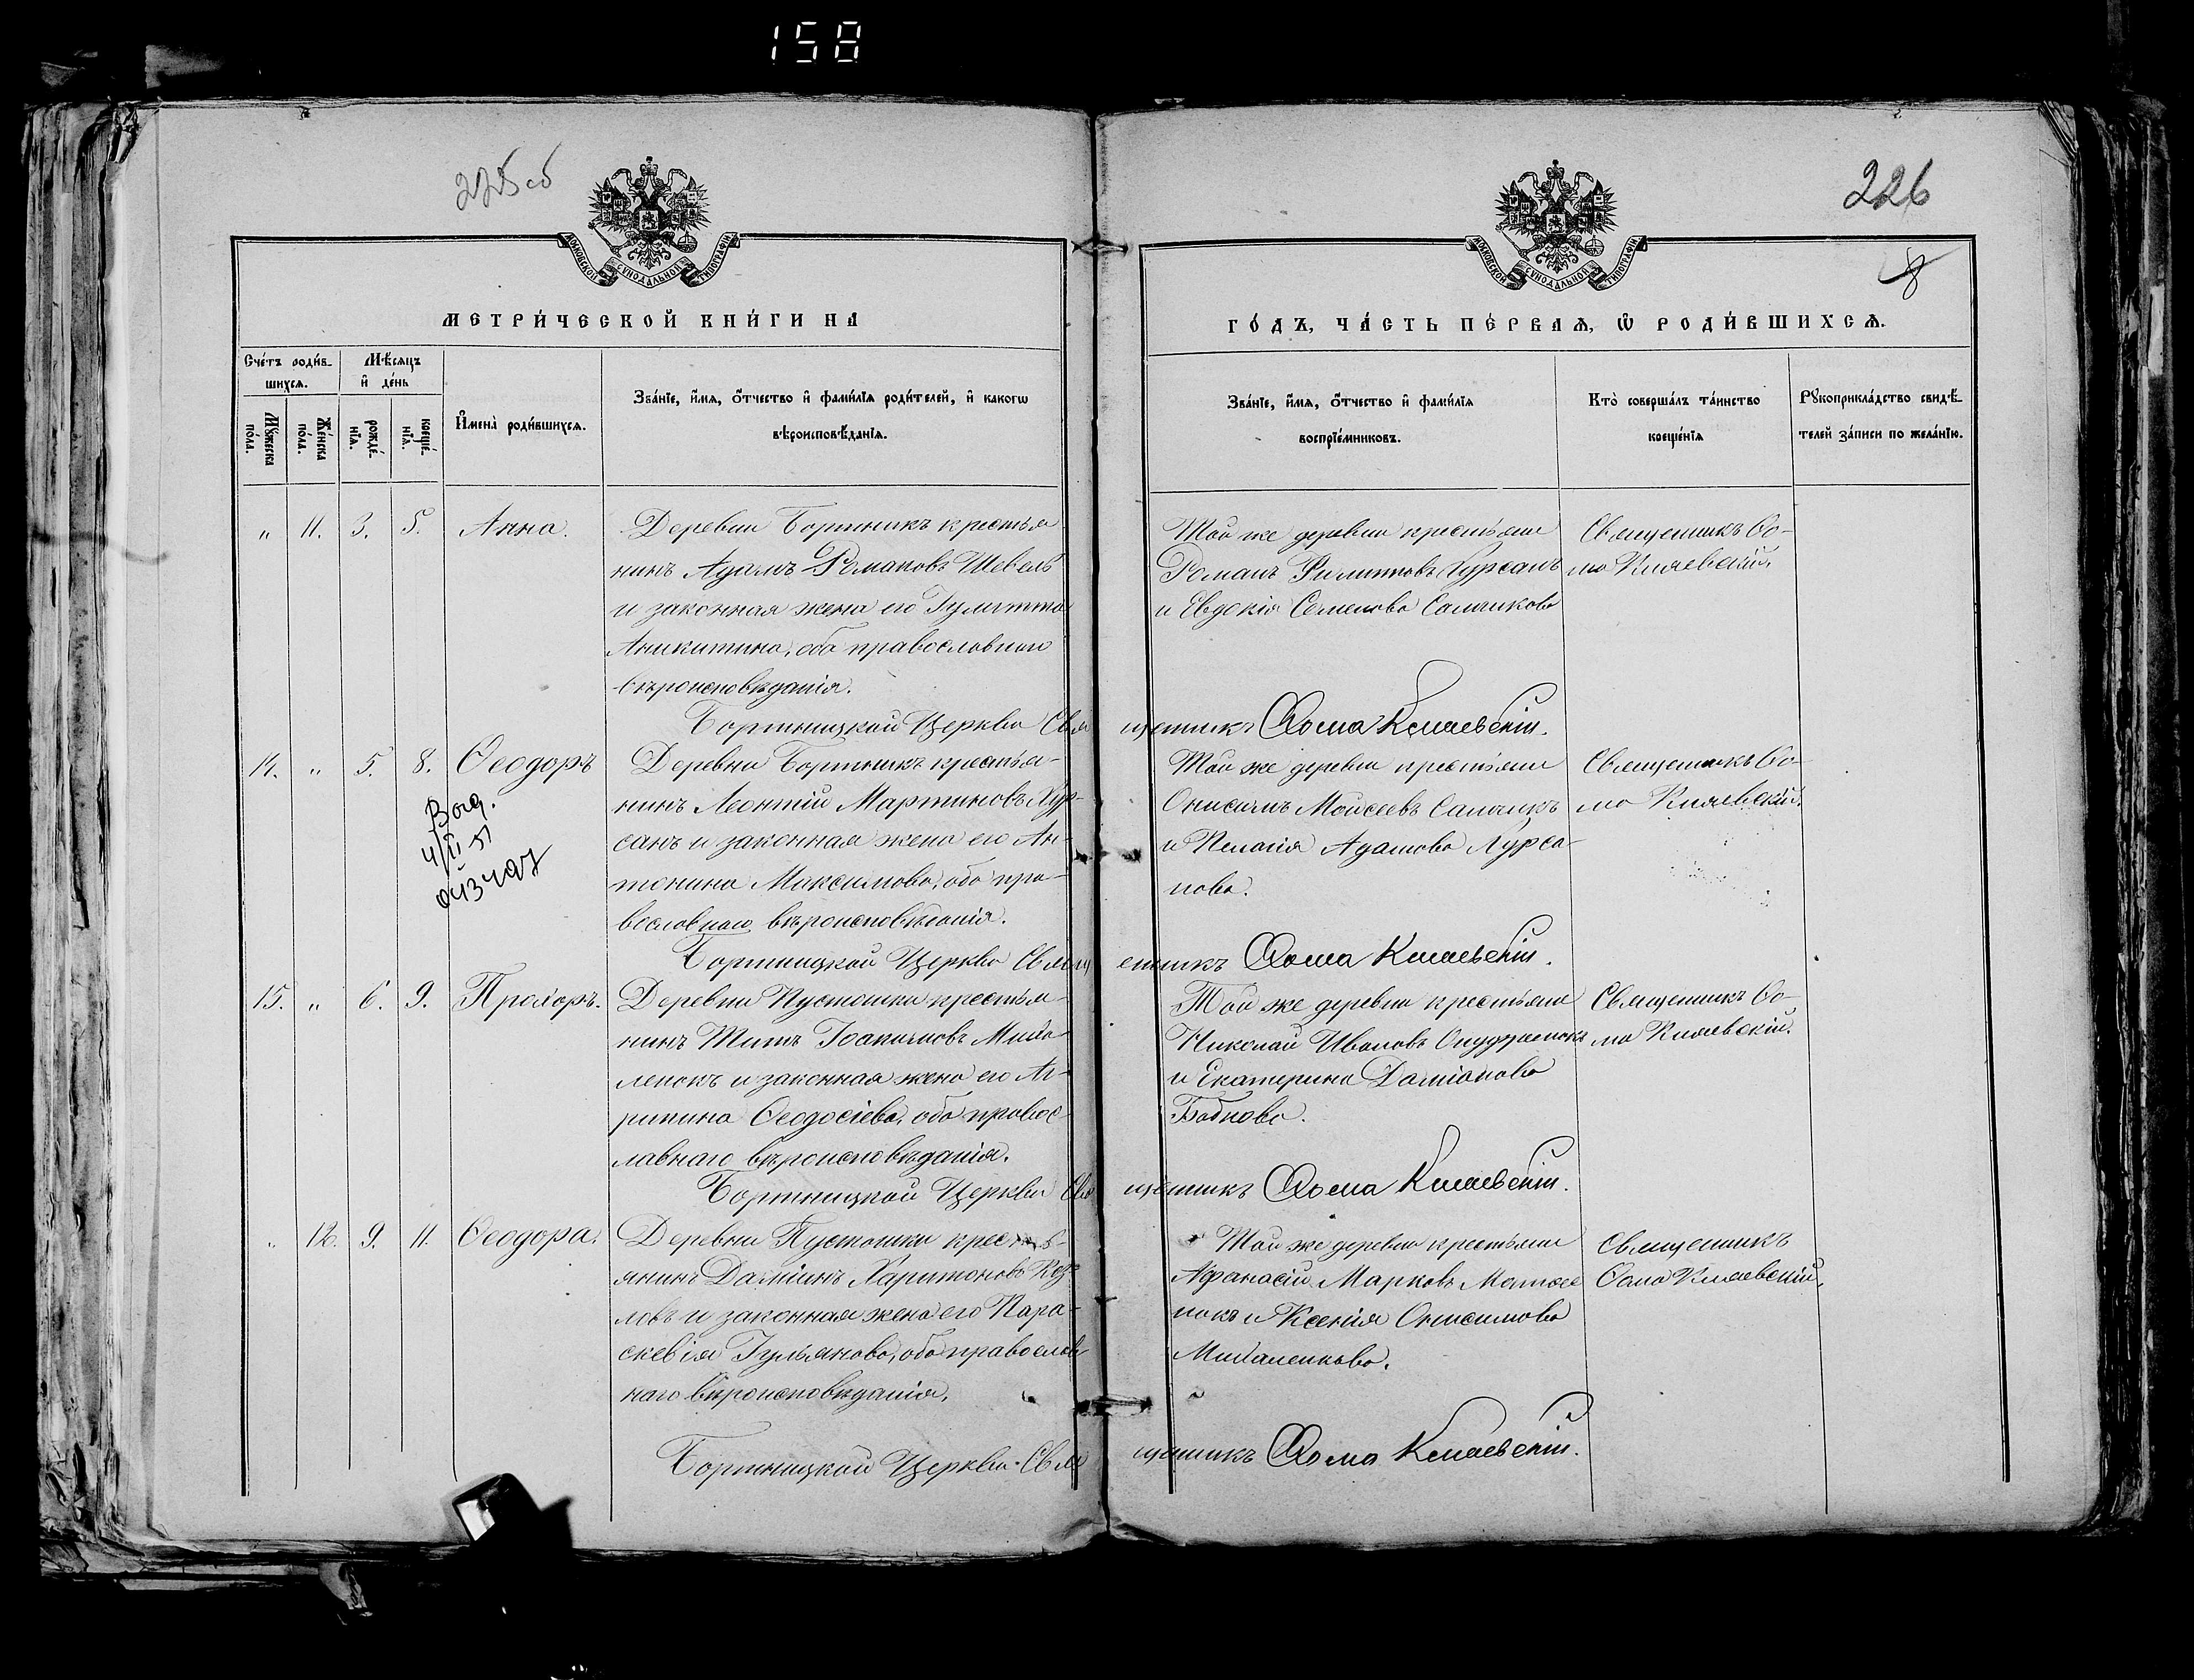 158
225 об
226
8
МОСКОВСКОЙ СѴНОДАЛЬНОЙ ТИПОГРАФІИ
МОСКОВСКОЙ СѴНОДАЛЬНОЙ ТИПОГРАФІИ
МЕТРИ́ЧЕСКОЙ КНИ́ГИ НА̀
ГО́ДЪ, ЧА́СТЬ ПЕ́РВАѦ, Ѡ҆ РОДИ́ВШИХСѦ.
Сче́тъ роди́в-
шихсѧ.
Мꙋ́жеска
по́ла.
Же́нска
по́ла.
Мѣ́сѧцъ
и҆ де́нь
рожде́-
нїѧ.
креще́-
нїѧ.
И҆мена̀ роди́вшихсѧ.
Зва́нїе, и҆́мѧ, ѻ҆́тчество и҆ фами́лїѧ роди́телей, и҆ како́гѡ
вѣроисповѣ́данїѧ.
Зва́нїе, и҆́мѧ, ѻ҆́тчество и҆ фами́лїѧ
воспрїе́мниковъ.
Кто̀ соверша́лъ та́инство
креще́нїѧ
Рꙋкоприкла́дство свидѣ́-
телей за́писи по жела́нїю.
" 11. 3. 5. Анна.
Деревни Бортникъ крестья-
нинъ Адамъ Романовъ Шевель
и законная жена его Іулитта
Аникитина, оба православнаго
вѣроисповѣданія.
Той же деревни крестьяне
Романъ Филиповъ Хурсанъ
и Евдокія Семенова Самчикова
Священникъ Ѳо-
ма Княевскій.
Бортницкой Церкви Священникъ Ѳома Княевскій.
14. " 5. 8. Ѳеодоръ
Выд.
4/II 51
Деревни Бортникъ крестья-
нинъ Леонтій Мартиновъ Хур-
санъ и законная жена его Ан-
тонина Максимова, оба пра-
вославнаго вѣроисповѣданія.
Той же деревни крестьяне
Онисимъ Моисеевъ Самчикъ
и Пелагія Адамова Хурса-
нова.
Священникъ Ѳо-
ма Княевскій.
Бортницкой Церкви Священникъ Ѳома Княевскій.
15. " 6. 9. Прохоръ.
Деревни Пустошки крестья-
нинъ Титъ Іоакимовъ Миха-
ленокъ и законная жена его Аг-
рипина Ѳеодосіева, оба правос-
лавнаго вѣроисповѣданія.
Той же деревни крестьяне
Николай Ивановъ Онуфріенокъ
и Екатерина Даміанова
Бобкова.
Священникъ Ѳо-
ма Княевскій.
Бортницкой Церкви Священникъ Ѳома Княевскій.
" 12. 9. 11. Ѳеодора.
Деревни Пустошки кресть-
янинъ Даміинъ Харитоновъ Коз-
ловъ и законная жена его Пара-
скевія Іульянова, оба православ-
наго вѣроисповѣданія.
Той же деревни крестьяне
Афанасій Марковъ
нокъ и Ксенія Онисимова
Михаленкова.
Священникъ
Ѳома Княевскій.
Бортницкой Церкви Священникъ Ѳома Княевскій.